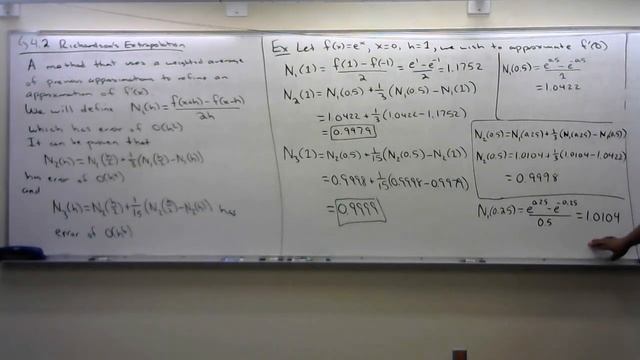 §4.2 Richardson's Extrapolation
A method that uses a weighted average
of previous approximations to refine an
approximation of f'(x)
We will define N₁(h) = f(x+h)-f(x-h) / 2h
which has error of O(h²)
It can be proven that
N₂(h) = N₁(h/2) + 1/3 (N₁(h/2) - N₁(h))
has error of O(h⁴)
and
N₃(h) = N₂(h/2) + 1/15 (N₂(h/2) - N₂(h)) has
error of O(h⁶)
Ex Let f(x)=eˣ, x=0, h=1, we wish to approximate f'(0)
N₁(1) = f(1)-f(-1) / 2 = e¹-e⁻¹ / 2 = 1.1752
N₂(1) = N₁(0.5) + 1/3 (N₁(0.5) - N₁(1))
= 1.0422 + 1/3 (1.0422 - 1.1752)
= 0.9979
N₃(1) = N₂(0.5) + 1/15 (N₂(0.5) - N₂(1))
= 0.9998 + 1/15 (0.9998 - 0.9979)
= 0.9999
N₁(0.5) = e^0.5 - e^-0.5 / 1
= 1.0422
N₂(0.5) = N₁(0.25) + 1/3 (N₁(0.25) - N₁(0.5))
N₂(0.5) = 1.0104 + 1/3 (1.0104 - 1.0422)
= 0.9998
N₁(0.25) = e^0.25 - e^-0.25 / 0.5 = 1.0104